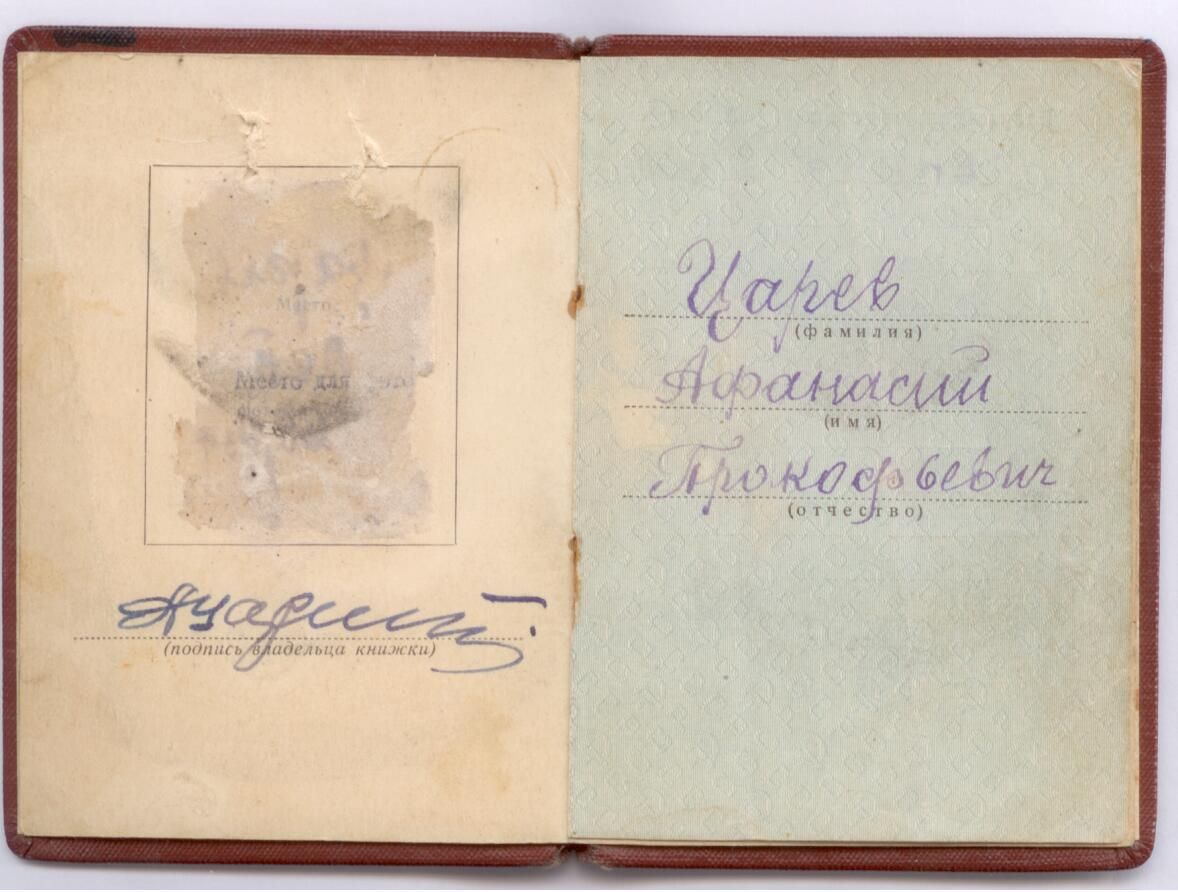 Место
Место для фото
(подпись владельца книжки)
Царев
(фамилия)
Афанасий
(имя)
Прокофьевич
(отчество)